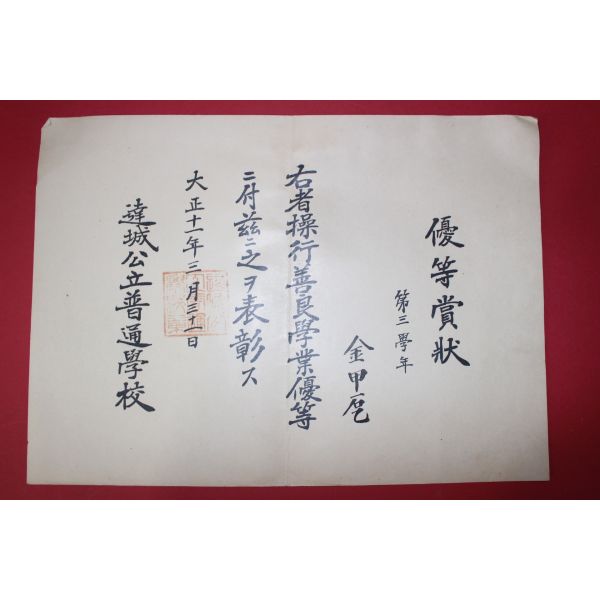 優等賞狀
第三學年
金甲乭
右者操行善良學業優等
ニ付玆ニ之ヲ表彰ス
大正十一年三月三十一日
達城公立普通學校